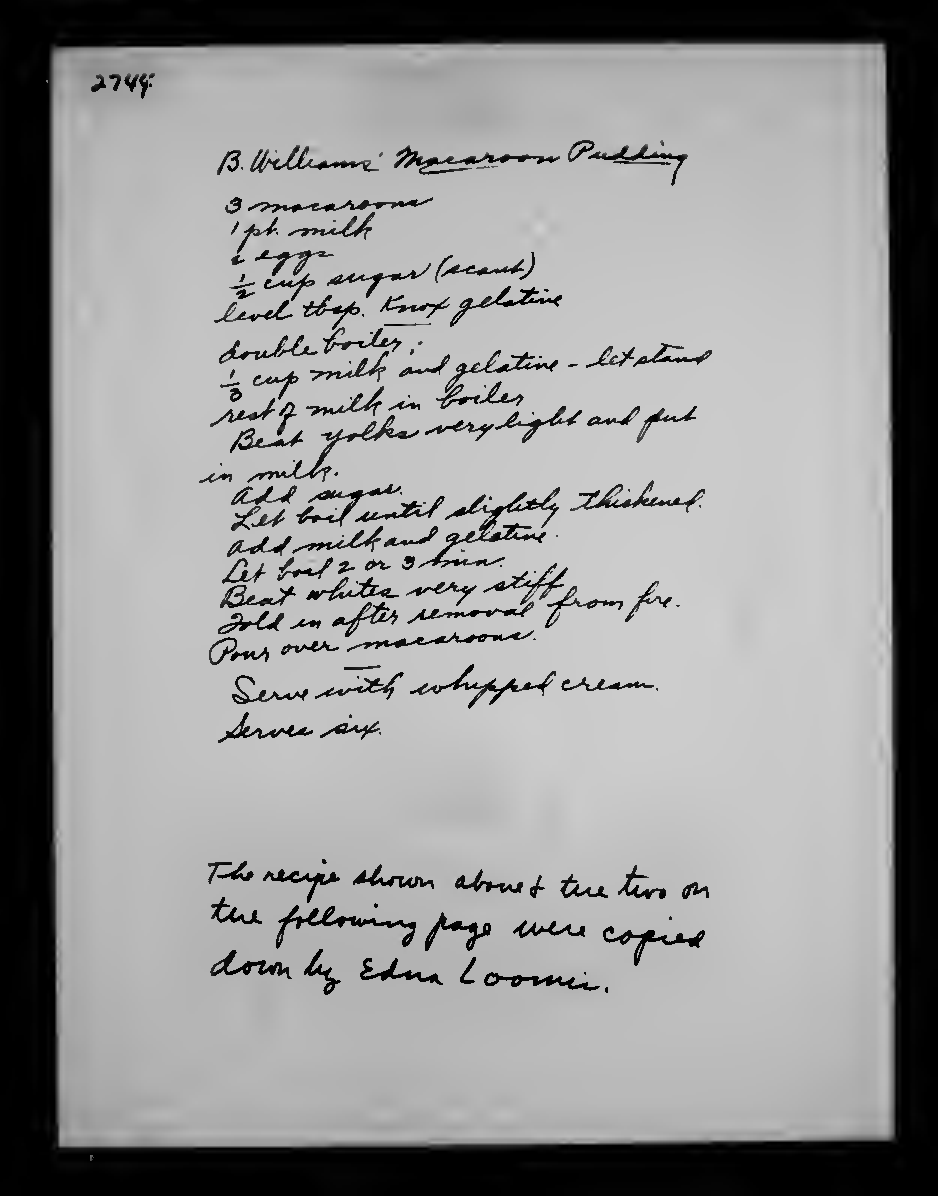 274y.
B. Williams' Macaroon Pudding
3 macaroons
1 pt. milk
eggs
1/2 cup sugar (scant)
level tbsp. Knox gelatine
double boiler;
1/3 cup milk and gelatine - let stand
rest of milk in boiler
Beat yolks very light and put
in milk.
Add sugar.
Let boil until slightly thickened.
Add milk and gelatine.
Let boil 2 or 3 min.
Beat whites very stiff
Fold in after removal from fire.
Pour over macaroons.
Serve with whipped cream.
Serves six.
The recipe shown above & the two on
the following page were copied
down by Edna Loomis.